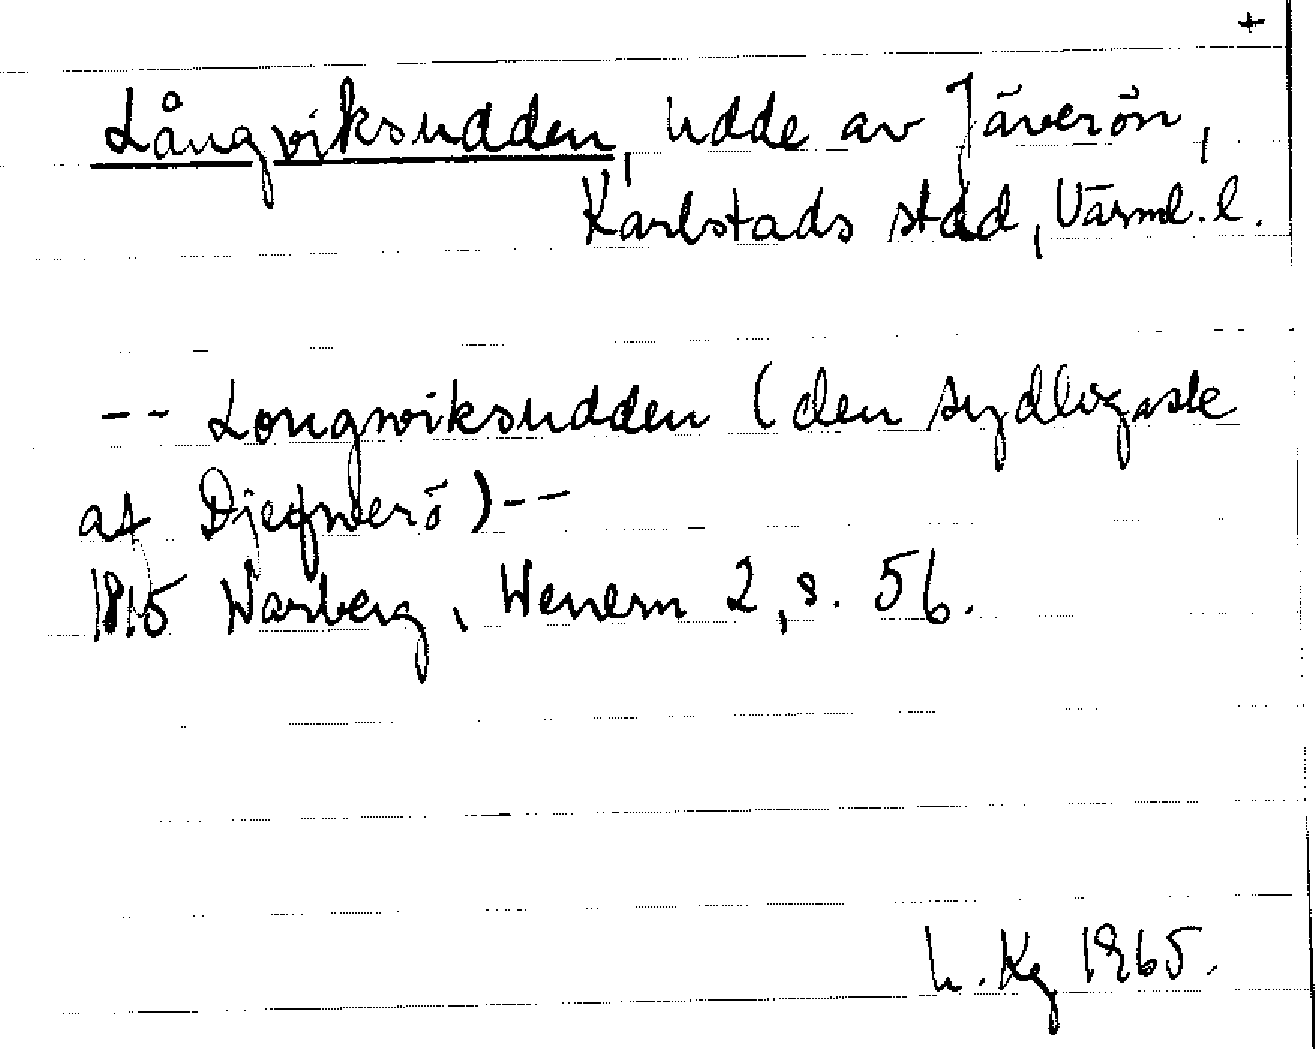 +
Långviksudden, udde av Jäverön,
Karlstads stad, Värml. l.
-- Longwiksudden (den sydligaste
af Djefwerö) --
1815 Warberg, Wenern 2, s. 56.
L. Kg 1965.